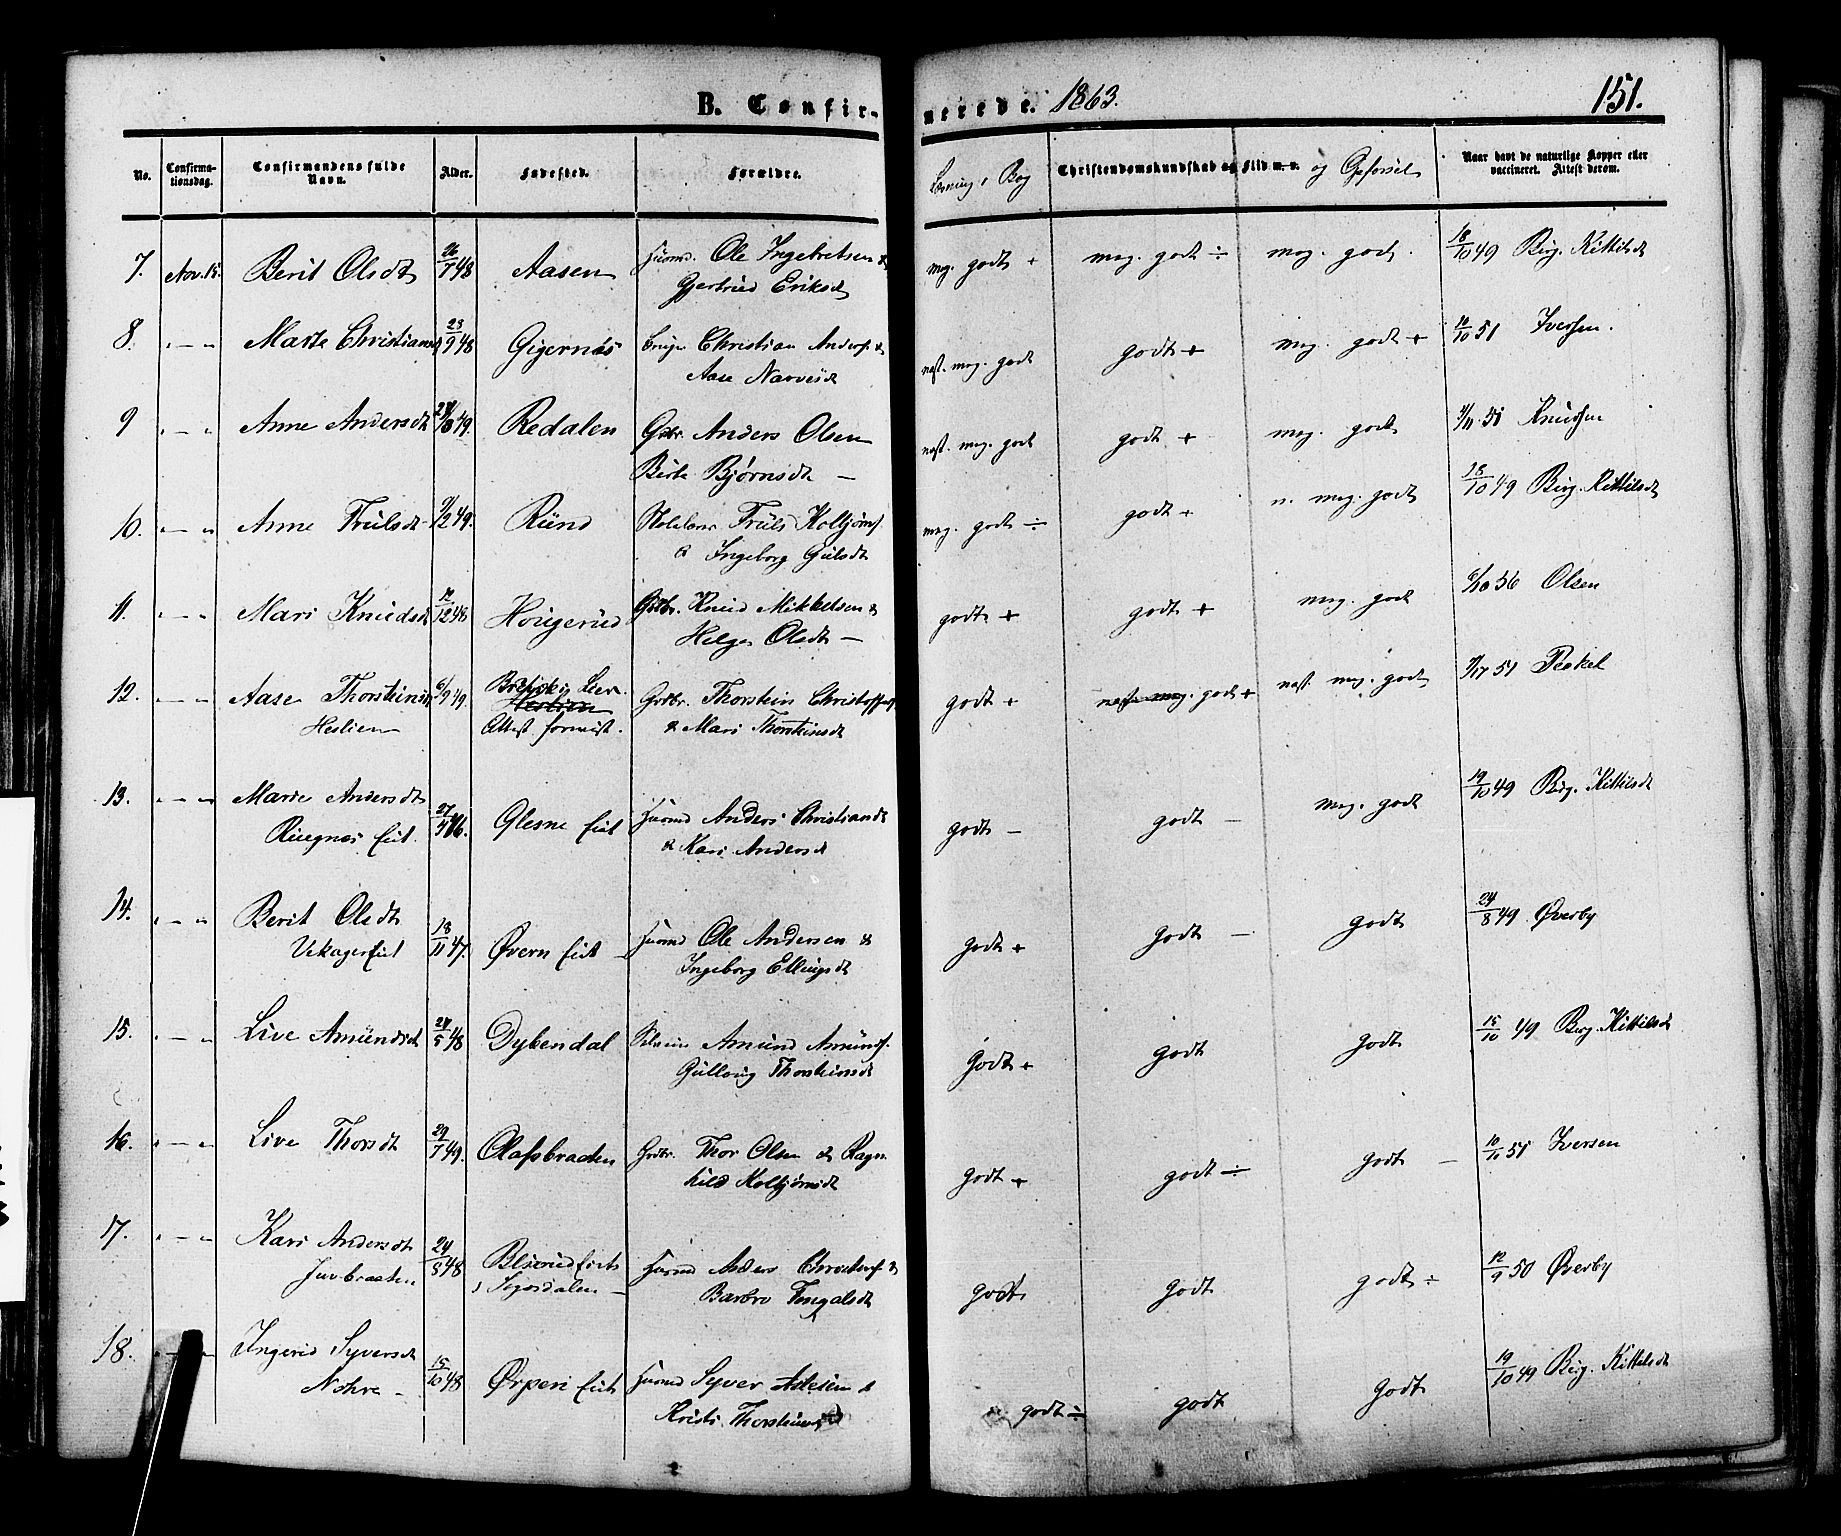 B. Confir-
merede. 1863.
151.
No.
Confirma-
tionsdag.
Confirmandens fulde
Navn.
Alder.
Fødested.
Forældre.
Læsning i Bog
Christendomskundskab og Flid m. v.
og Opførsel
Naar havt de naturlige Kopper eller
vaccineret. Attest derom.
7. Nov. 15. Berit Olsdt 26/7 48 Aasen Huusmd. Ole Ingebretsen &
Gjertrud Eriksdt
meg. godt + meg. godt ÷ meg. godt. 18/10 49 Birg. Kittilsdt
8. " — " Marte Christiansdt 23/9 48 Gigernæs Christian Anders. &
Aase Narvesdt
næst. meg. godt godt + meg. godt + 10/10 51 Iversen.
9 " — " Anne Andersdt 49. Redalen Gdbr. Anders Olsen
Birte Bjørnsdt —
næst. meg. godt godt + meg. godt 51 Knudsen
10. " — " Anne Trulsdt 49. Rund Truls Kolbjørns.
& Ingeborg Gulsdt
meg. godt ÷ godt + n. meg. godt 18/10 49 Birg. Kittilsdt
11. " — " Mari Knudsdt 12 48 Hougerud Gdbr. Knud Mikkelsen &
Helge Olsdt —
godt + godt + meg. godt 6/10 56 Olsen
12. " — " Aase Thorsteinsdt 6/9 49.
Heslien
Attest forevist.
Gdbr. Thorstein Christoffers.
& Mari Thorsteinsdt
godt + godt + næst. meg. godt 51
13. " — " Marie Andersdt 27 46. Glesne Eiet Huusmd Anders Christians
Ringnæs Eiet. & Kari Andersdt
godt — godt — meg. godt 19/10 49 Birg. Kittilsdt
14. " — " Berit Olsdt 18/11 47. Øvern Eiet Huusmd Ole Andersen &
Ingeborg Ellingsdt
godt + godt — godt 24/8 49 Øverby
15. " — " Live Amundsdt 24/5 48 Dybendal Amund Amunds.
Gulloug Thorsteinsdt
godt + godt godt 15/10 49 Birg. Kittilsdt
16. " — " Live Thorsdt 29/7 49. Olafsbraaten Gdbr. Thor Olsen & Ragn
hild Kolbjørnsdt
godt + godt ÷ godt — 10/10 51 Iversen
17. " — " Kari Andersdt 24/5 48
Juvbraaten
i Sigerdalen —
Huusmd Anders &
Barbro Tengelsdt
godt godt godt ÷ 12/9 50 Øverby
18. " — " Ingerid Syversdt 15/10 48 Ørpen Eiet Huusmd Syver Astesen &
Nohre — Kristi Thorsteinsdt
godt ÷ godt godt 19/10 49 Birg. Kittilsdt